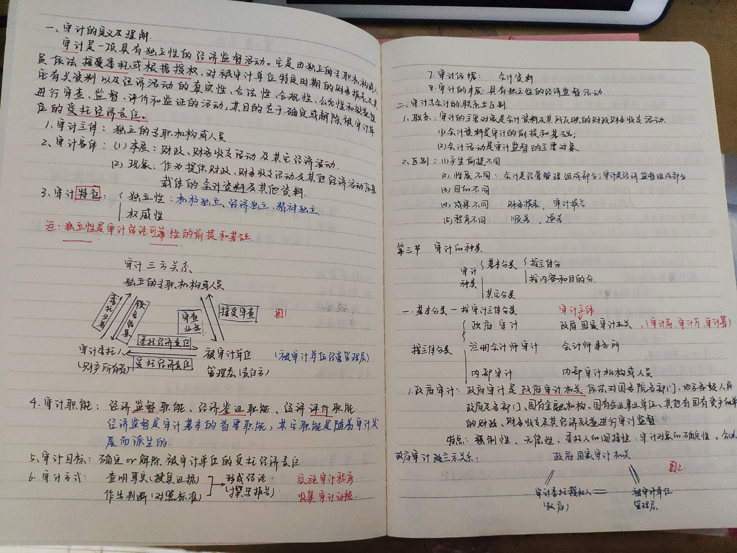 一、审计的定义及理解
审计是一项具有独立性的经济监督活动。它是由独立的专职机构或人
员依法接受委托或根据授权,对被审计单位特定时期的财务报表及其
它有关资料以及经济活动的真实性、合法性、合规性、公允性和效益性
进行审查、监督、评价和鉴证的活动,其目的在于确定或解除被审计单
位的受托经济责任。
1、审计主体:独立的专职机构或人员
2、审计客体:(1)本质:财政、财务收支活动及其它经济活动
(2)现象:作为提供财政、财务收支活动及其他经济活动信息
载体的会计资料及其他资料
3、审计特征:独立性:机构独立、经济独立、精神独立
权威性
注:独立性是审计结论可靠性的前提和基础
审计三方关系
独立的专职机构或人员
委托审计
报告结果
审查
接受审查
图1
委托经济责任
受托经济责任
审计委托人
(财产所有者)
被审计单位
管理层(责任方)
(被审计单位经营管理层)
4、审计职能:经济监督职能、经济鉴证职能、经济评价职能
经济监督是审计基本的首要职能,其它职能是随着审计发
展而派生的
5、审计目标:确定or解除被审计单位的受托经济责任
6、审计方式:查明事实(搜集证据)
作出判断(对照标准)
形成结论
(撰写报告)
实施审计程序
收集审计证据
7、审计依据:会计资料
8、审计的本质:具有独立性的经济监督活动
二、审计与会计的联系与区别
1、联系:审计的主要对象是会计资料及其所反映的财政财务收支活动
(1)会计资料是审计的前提和基础;
(2)会计活动是审计监督的主要对象。
2、区别:(1)产生前提不同
(2)性质不同:会计是经营管理组成部分;审计是经济监督组成部分
(3)目的不同
(4)成果不同 财务报表、审计报告
(5)程序不同:顺序、逆序
第三节 审计的种类
审计种类
基本分类
按主体分
按内容和目的分
其它分类
一、基本分类—按审计主体分类
审计主体
按主体分类
政府审计 政府国家审计机关 (审计局、审计厅、审计署)
注册会计师审计 会计师事务所
内部审计 内部审计机构或人员
1、政府审计:政府审计是政府审计机关依法对国务院各部门、地方各级人民
政府及各部门、国有金融机构、国有企业事业单位、其他有国有资产的单位
的财政、财务收支及其经济效益进行审计监督
特点:强制性、无偿性、委托人的间接性、审计对象的不确定性
政府审计的三方关系:政府国家审计机关
图2
审计委托授权人
(政府)
被审计单位
管理层